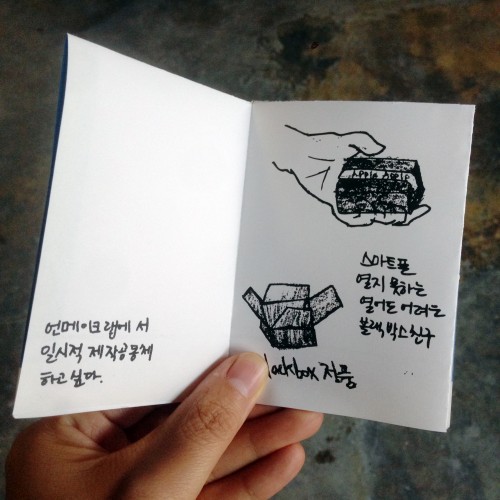 언메이크랩에서
일시적 제작공동체
하고싶다.
Apple Apple
스마트폰
열지 못하는
열어도 어려운
블랙박스친구
제품